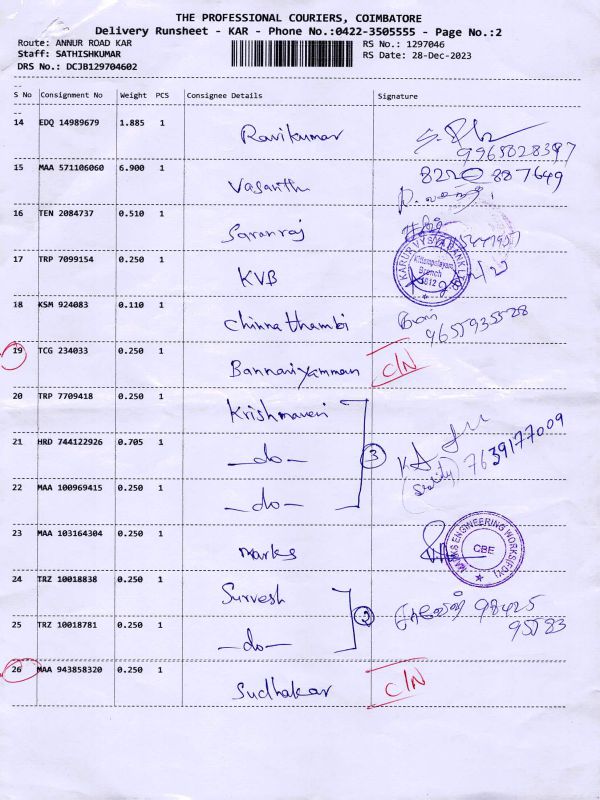 THE PROFESSIONAL COURIERS, COIMBATORE
Delivery Runsheet - KAR - Phone No.:0422-3505555 - Page No.:2
Route: ANNUR ROAD KAR RS No.: 1297046
Staff: SATHISHKUMAR RS Date: 28-Dec-2023
DRS No.: DCJB129704602
S No Consignment No Weight PCS Consignee Details Signature
14 EDQ 14989679 1.885 1 Ravikumar
9965028397
15 MAA 571106060 6.900 1 Vasanth 8220 887649
16 TEN 2084737 0.510 1 Saranraj
17 TRP 7099154 0.250 1 KVB KARUR VYSYA BANK LTD. Branch 1812
18 KSM 924083 0.110 1 Chinnathambi
9655935528
19 TCG 234033 0.250 1 Bannariyamman C/N
20 TRP 7709418 0.250 1 Krishnaveni
21 HRD 744122926 0.705 1 —do— 3 7639177009
22 MAA 100969415 0.250 1 —do—
23 MAA 103164304 0.250 1 marks MARKS ENGINEERING WORKS CBE
24 TRZ 10018838 0.250 1 Survesh 2 98425
25 TRZ 10018781 0.250 1 —do— 95583
26 MAA 943858320 0.250 1 Sudhakar C/N